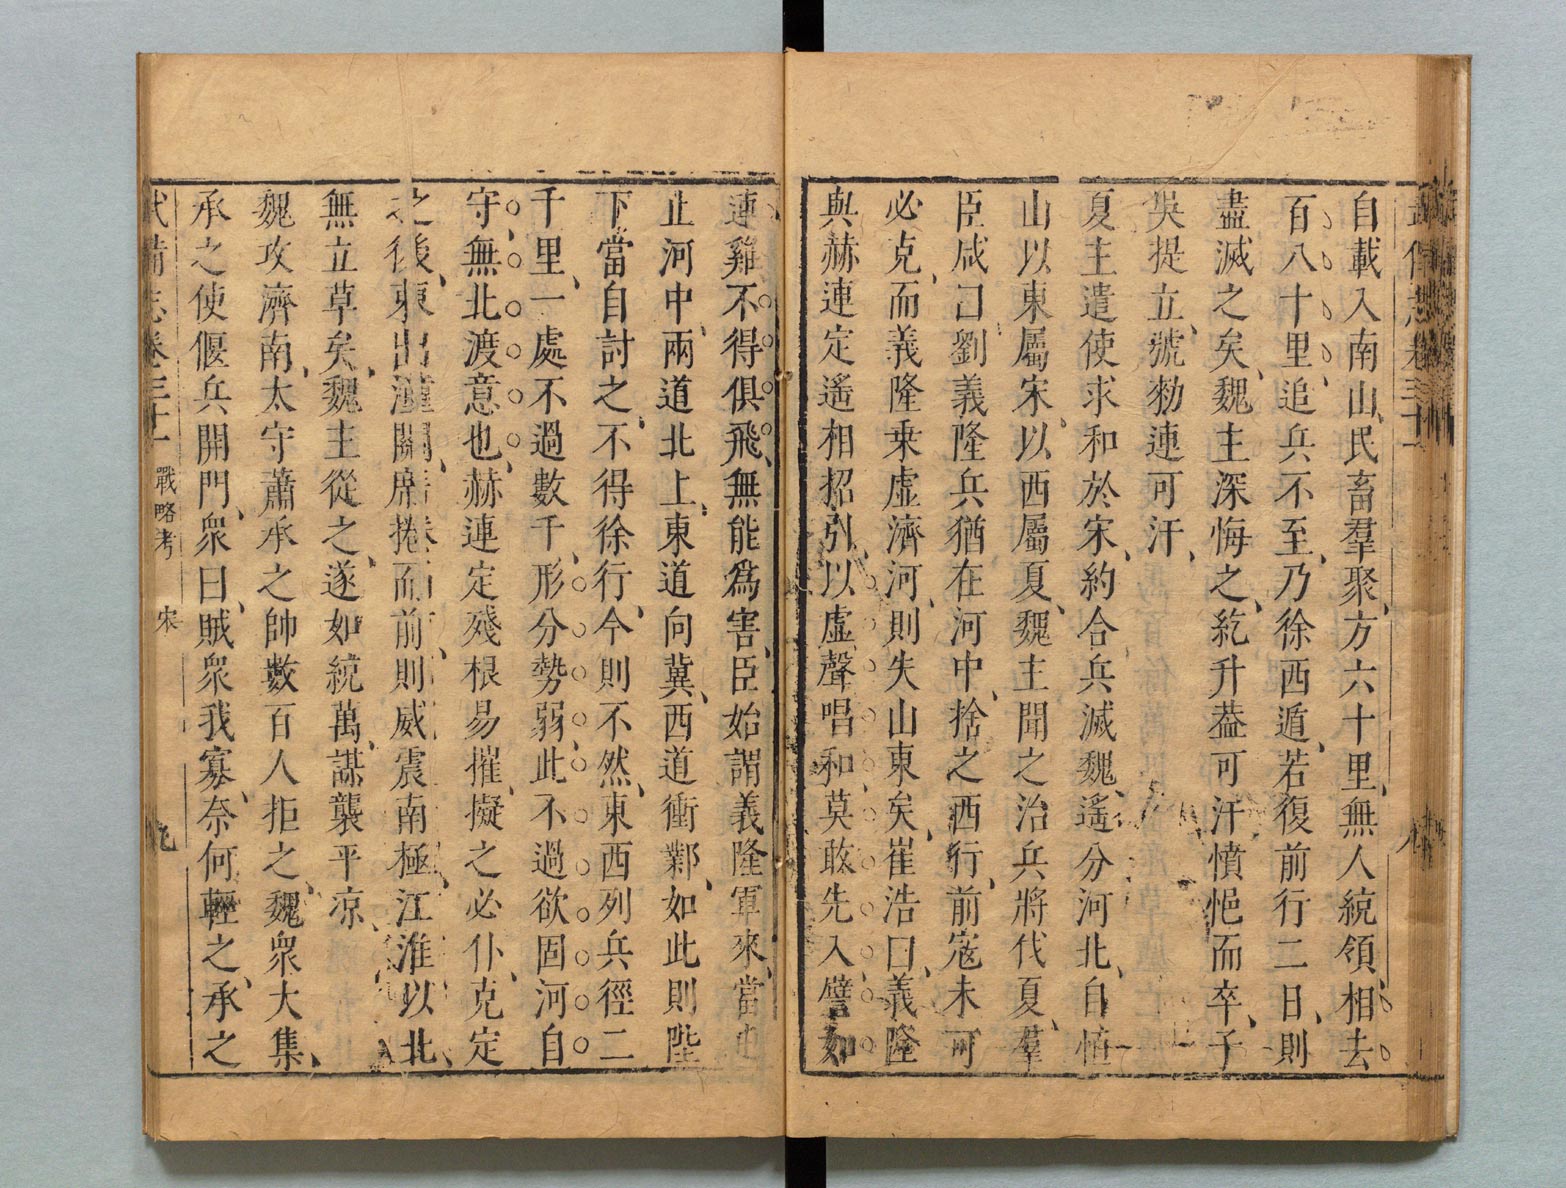 武備志卷三十一
八
自載入南山民畜羣聚方六十里無人統領相去
百八十里追兵不至乃徐西遁若復前行二日則
盡滅之矣魏主深悔之紇升葢可汗憤悒而卒子
吳提立號勑連可汗
夏主遣使求和於宋約合兵滅魏遙分河北自恒
山以東屬宋以西屬夏魏主聞之治兵將伐夏羣
臣咸曰劉義隆兵猶在河中捨之西行前寇未可
必克而義隆乗虛濟河則失山東矣崔浩曰義隆
與赫連定遙相招引以虛聲唱和莫敢先入譬如
連雞不得俱飛無能爲害臣始謂義隆軍來當屯
止河中兩道北上東道向冀西道衝鄴如此則陛
下當自討之不得徐行今則不然東西列兵徑二
千里一處不過數千形分勢弱此不過欲固河自
守無北渡意也赫連定殘根易摧擬之必仆克定
之後東出潼關席捲而前則威震南極江淮以北
無立草矣魏主從之遂如統萬謀襲平凉
魏攻濟南太守蕭承之帥數百人拒之魏衆大集
承之使偃兵開門衆曰賊衆我寡奈何輕之承之
武備志卷三十一 戰略考 宋 九